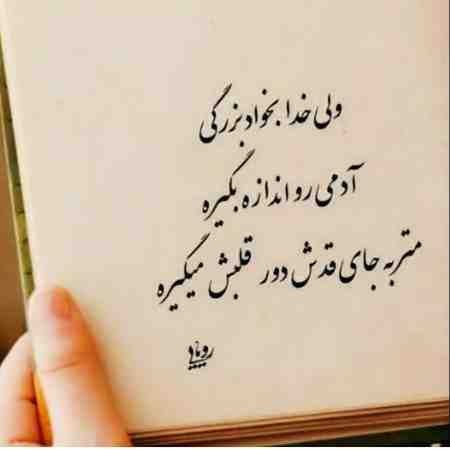 ولی خدا بخواد بزرگی
آدمی رو اندازه بگیره
متر به جای قدش دور قلبش میگیره